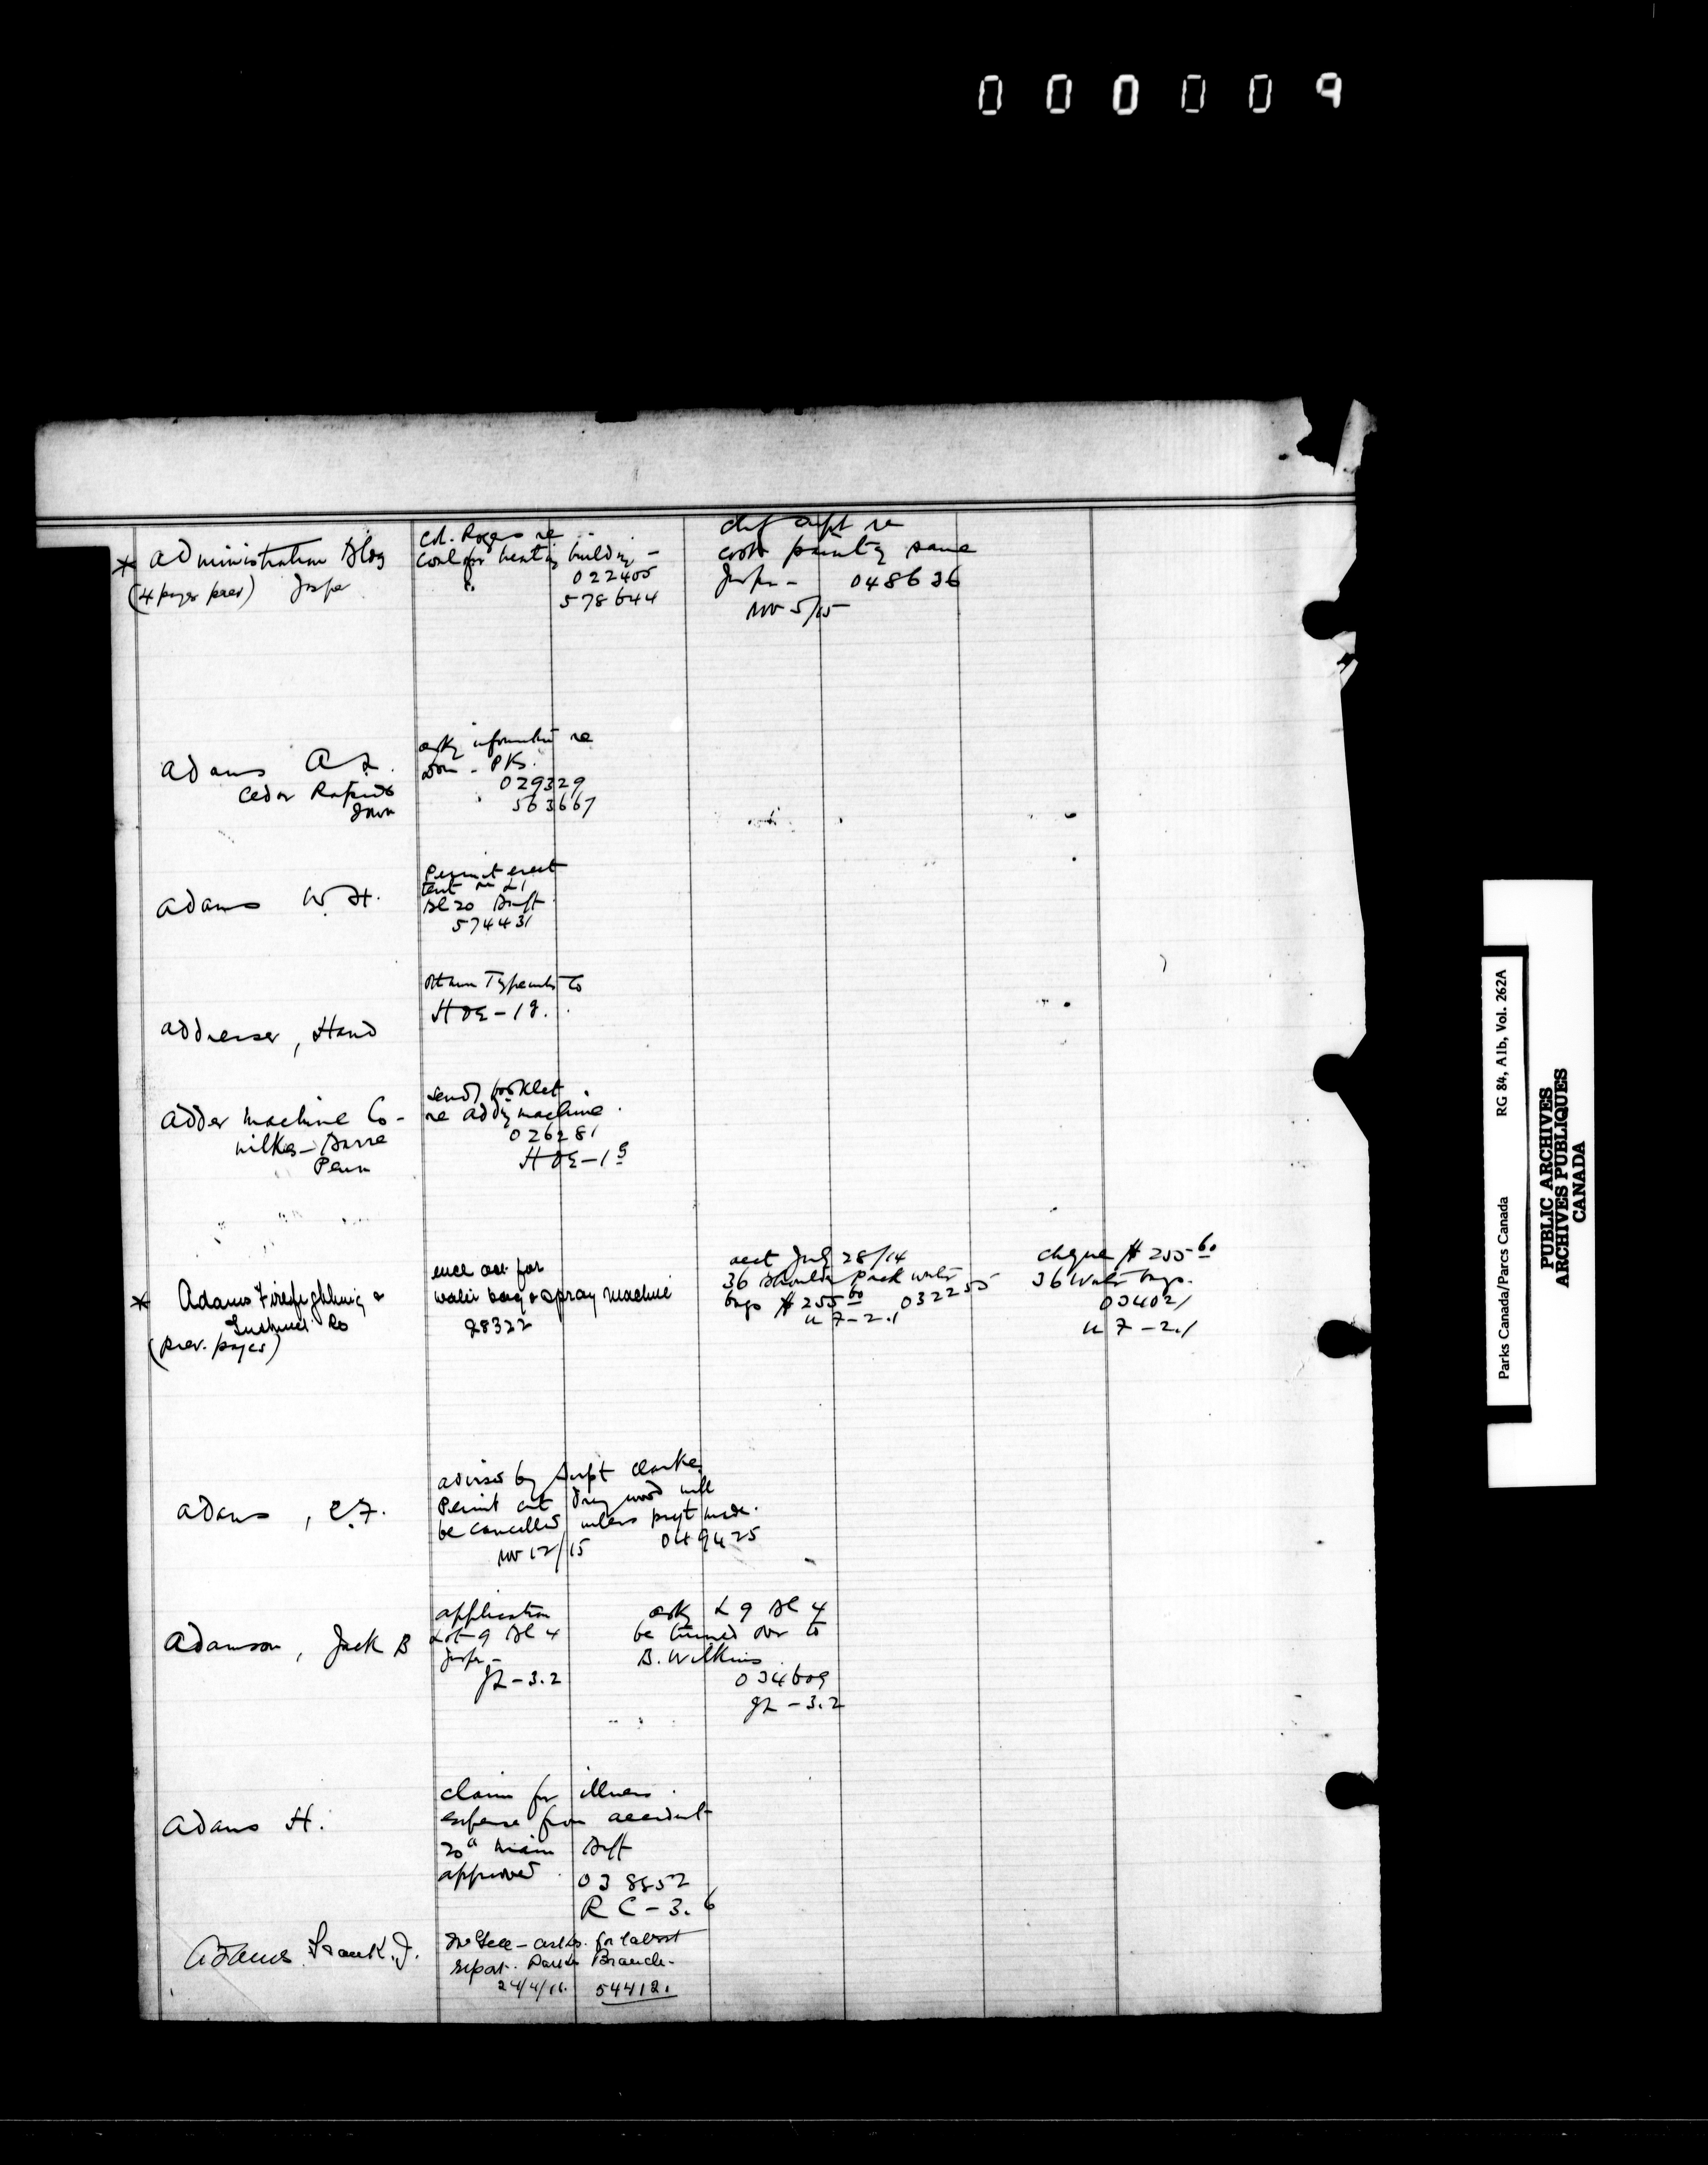 000009
* Administration Bldg
(4 pages prev) Jasper
Col. Rogers re
coal for heating building -
022405
578644
Chf Supt re
cost painting same
Jasper - 048636
Nov 5/15
Adams A L.
Cedar Rapids
Iowa
askg information re
Dom - PKs.
029329
563667
Adams W. H.
Permit erect
tent on L1
Bl 20 Banff
574431
Addresser, Hand
Ottawa Typewriter Co
HOE-19.
Adder Machine Co -
Wilkes-Barre
Penn
Sendg booklet
re adding machine.
026281
HOE-19
* Adams Firefighting &
Co
(prev. pages)
encl acct for
water bag & spray machine
28322
acct July 28/14
36 shoulder pack water
bags $255 60 032255
U 7-2.1
cheque $255 60
36 water bags.
034021
U 7-2.1
Adams, C.F.
advised by Supt Clarke
Permit cut dry wood will
be cancelled unless payt made.
Nov 12/15 049425
Adamson, Jack B
application
Lot 9 Bl 4
Jasper -
JL-3.2
askg L 9 Bl 4
be turned over to
B. Wilkins
034609
JL-3.2
Adams H.
claim for illness
expense from accident
approved
038852
RC-3.6
Adams Frank. J.
McGill - asks. for latest
report. Parks Branch.
24/4/16. 54412.
Parks Canada/Parcs Canada RG 84, A1b, Vol. 262A
PUBLIC ARCHIVES
ARCHIVES PUBLIQUES
CANADA